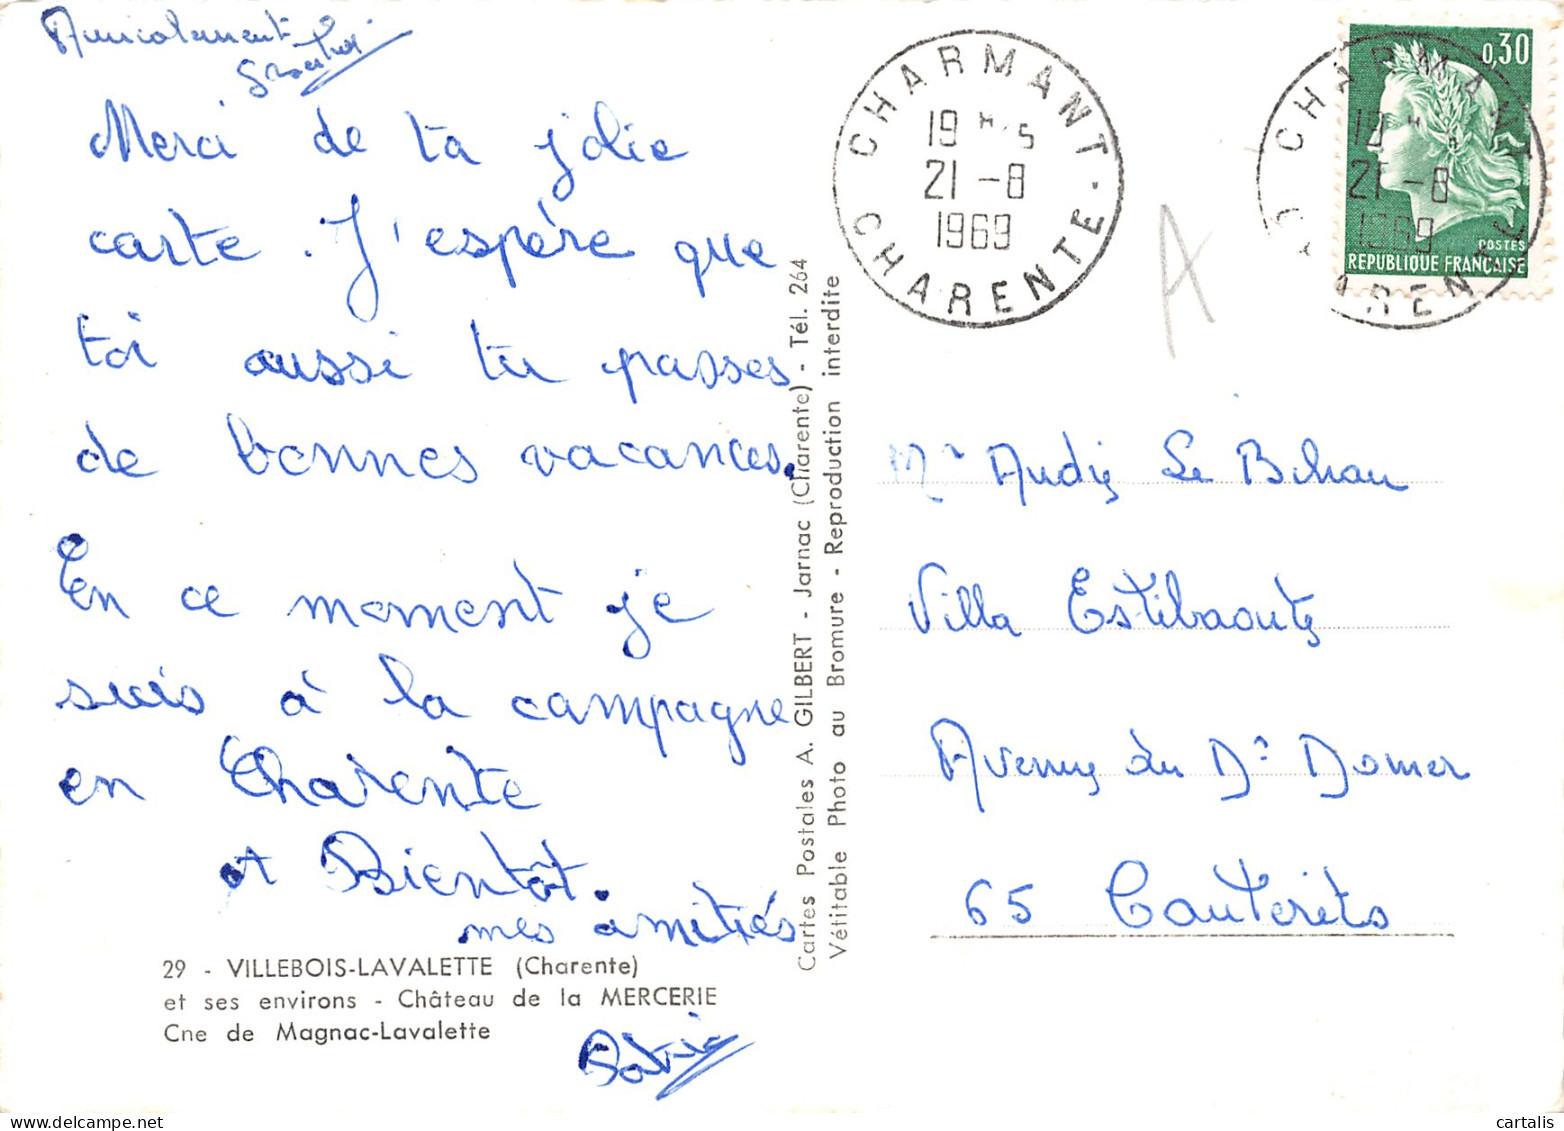 Amicalement
Merci de ta jolie
carte. J'espère que
toi aussi tu passes
de bonnes vacances.
En ce moment je
suis à la campagne
en Charente
A Bientôt.
mes amitiés
Patric
29 - VILLEBOIS-LAVALETTE (Charente)
et ses environs - Château de la MERCERIE
Cne de Magnac-Lavalette
Cartes Postales A. GILBERT - Jarnac (Charente) - Tél. 264
Vétitable Photo au Bromure - Reproduction interdite
CHARMANT - CHARENTE
19 H. 5
21 - 8
1969
0,30
POSTES
REPUBLIQUE FRANÇAISE
CHARMANT
21 - 8
1969
CHARENTE
A
Mr Le Bihan
Villa
Avenue du Dr Domer
65 Cauterets
© cartalis delcampe.net